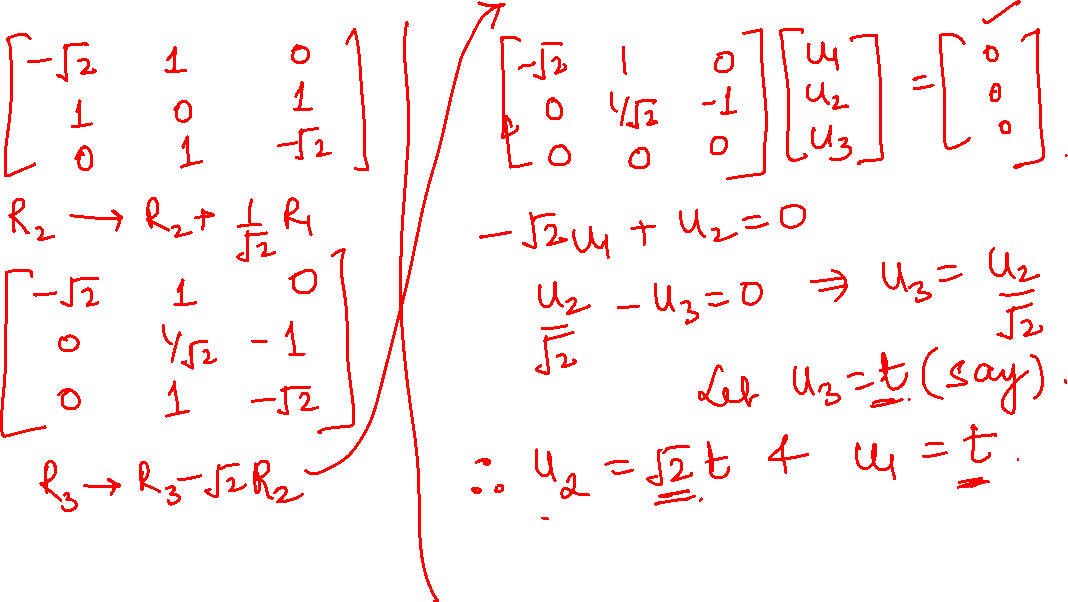 [-√2 1 0]
[1 0 1]
[0 1 -√2]
R₂ → R₂ + 1/√2 R₁
[-√2 1 0]
[0 1/√2 -1]
[0 1 -√2]
R₃ → R₃ - √2 R₂
[-√2 1 0] [u₁] = [0]
[0 1/√2 -1] [u₂] [0]
[0 0 0] [u₃] [0].
-√2 u₁ + u₂ = 0
u₂/√2 - u₃ = 0 ⇒ u₃ = u₂/√2
Let u₃ = t (say).
∴ u₂ = √2 t & u₁ = t.